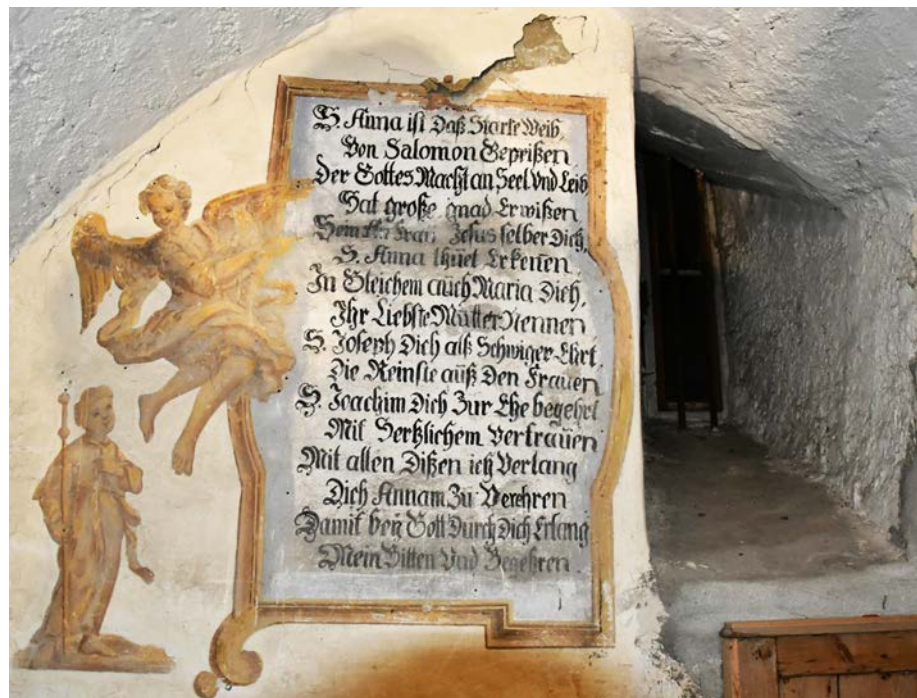 S. Anna ist Daß Starke Weib,
Von Salomon Geprißen
Der Gottes Macht an Seel Vnd Leib
Hat große gnad Erwißen
Jesus selber Dich,
S. Anna thuet Erkenen
In Gleichem auch Maria Dich,
Ihr Liebste Mutter Nennen
S. Joseph Dich alß Schwiger Ehrt
Die Reinste auß Den Frauen
S. Joachim Dich Zur Ehe begehrt
Mit Hertzlichem Vertrauen
Mit allen Dißen ich Verlang
Dich Annam Zu Verehren
Damit bey Gott Durch Dich Erlang
Mein Bitten Vnd Begehren.